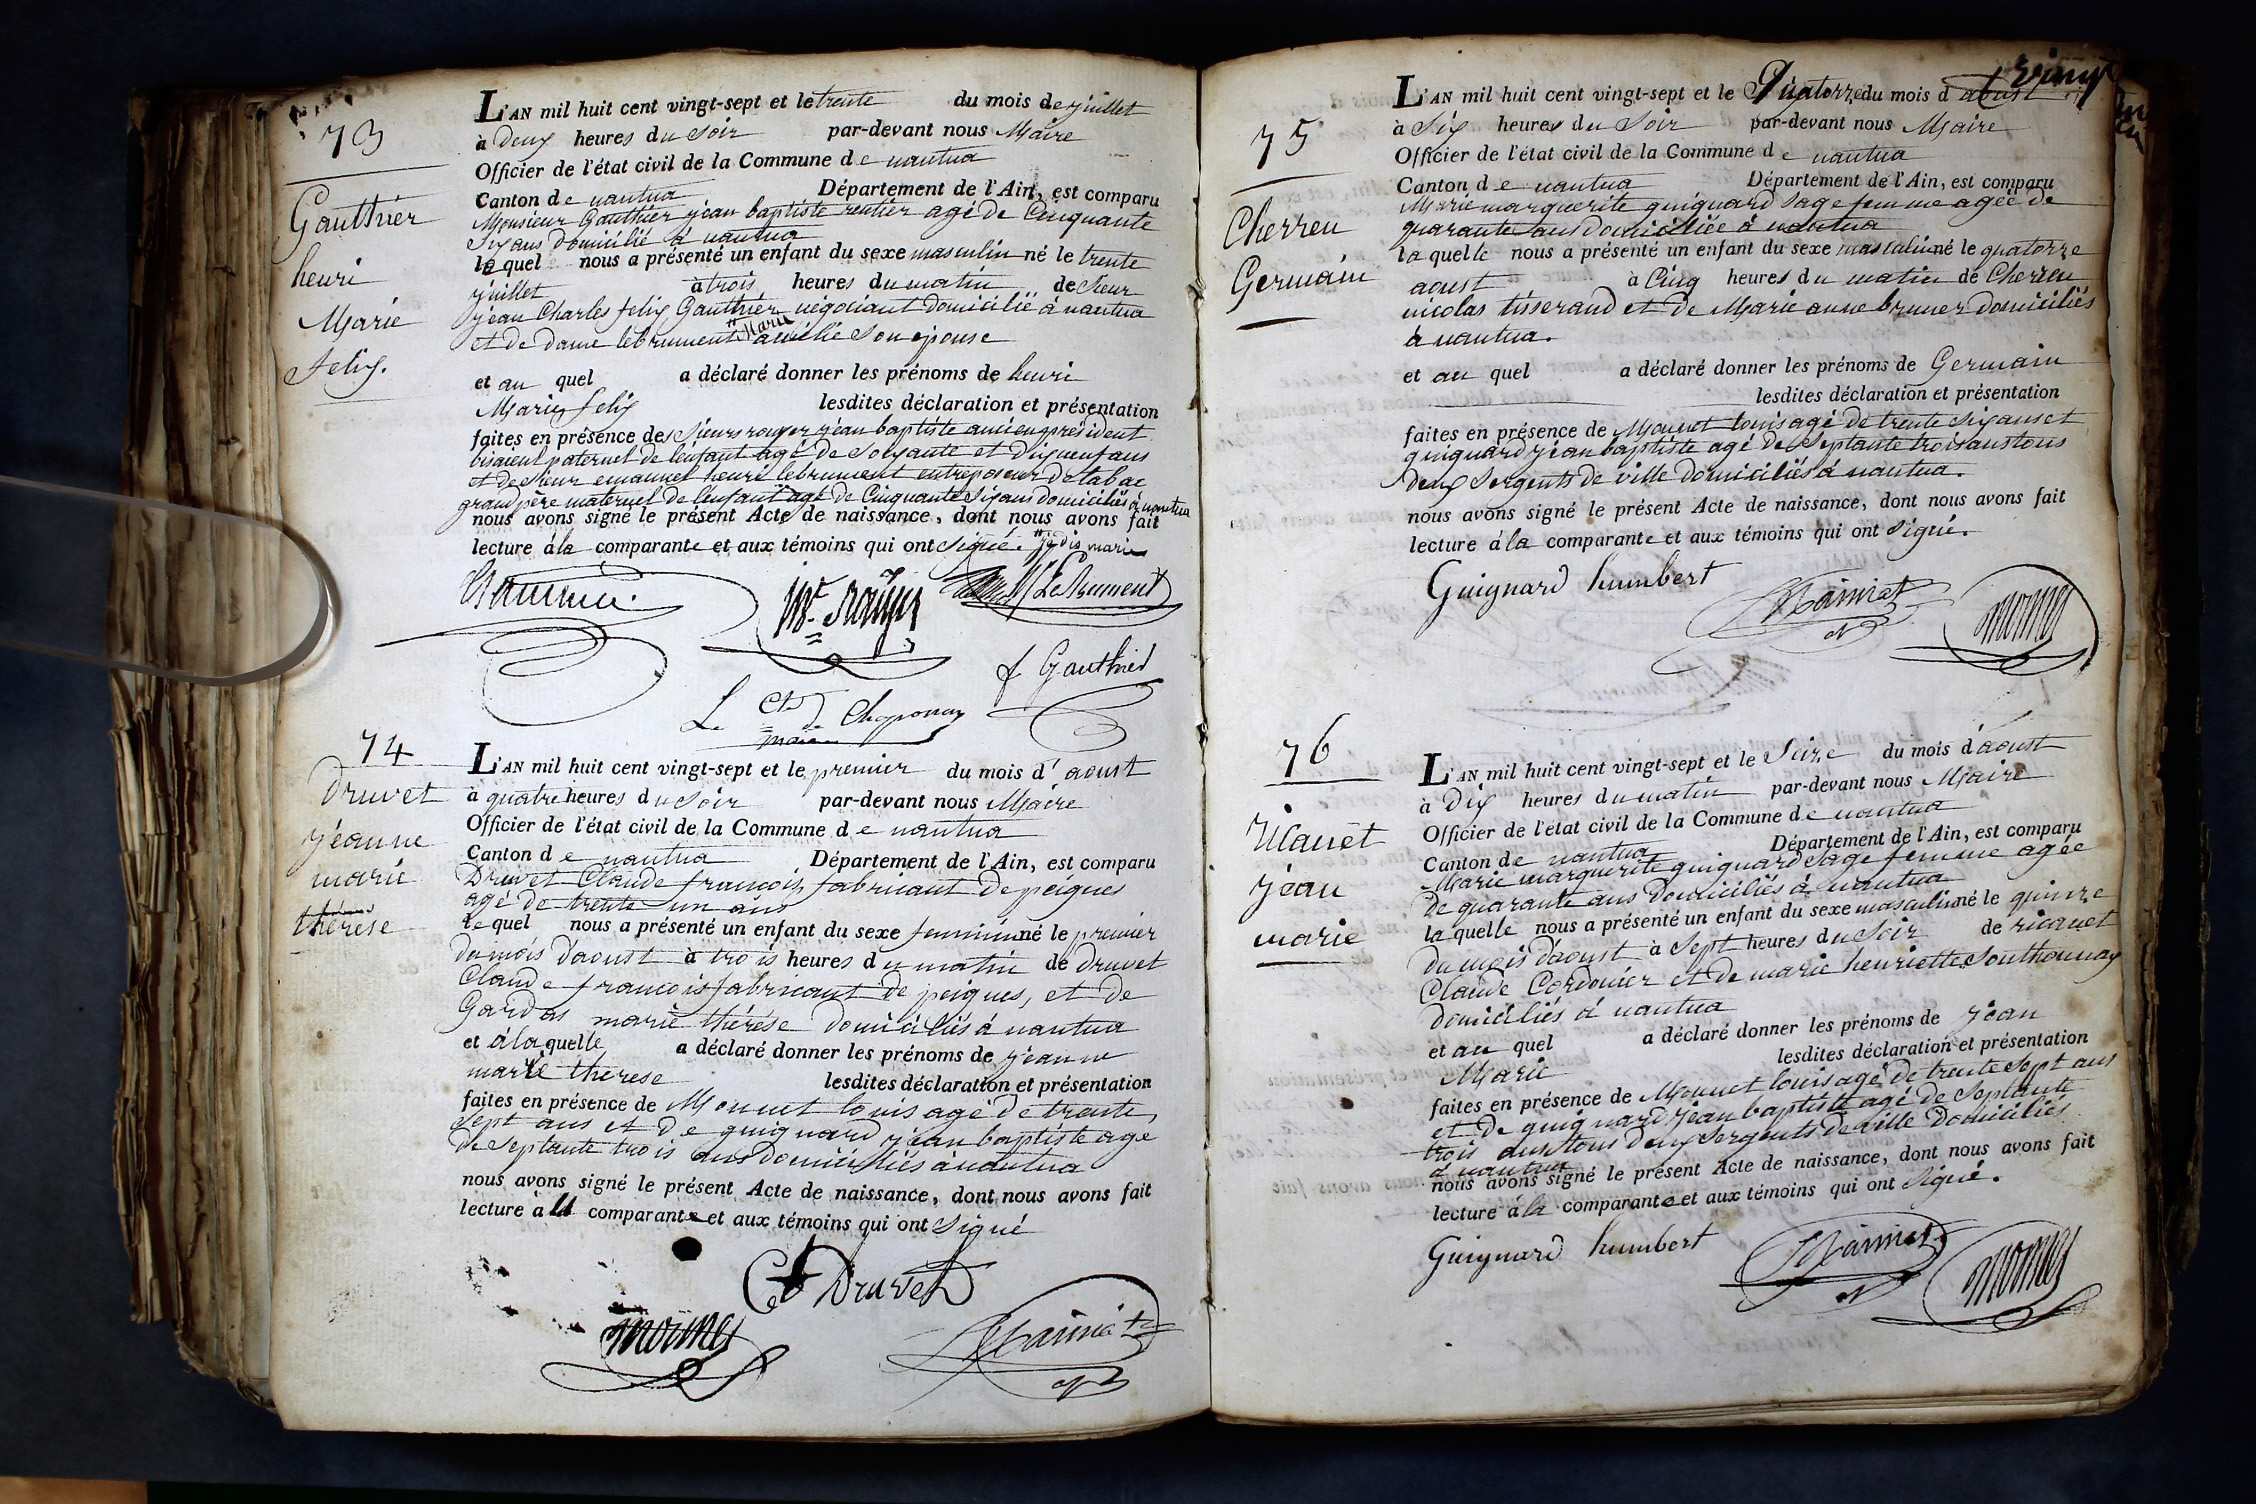 73
Gauthier
henri
Marie
felix.
L'AN mil huit cent vingt-sept et le trente du mois de juillet
à deux heures du soir par-devant nous Maire
Officier de l'état civil de la Commune de nantua
Canton de nantua Département de l'Ain, est comparu
Monsieur Gauthier jean baptiste rentier agé de Cinquante
six ans domicilié à nantua
lequel nous a présenté un enfant du sexe masculin né le trente
juillet à trois heures du matin de Sieur
jean Charles felix Gauthier négociant domicilié à nantua
et de dame lebrument # Marie aurélie Son épouse
et au quel a déclaré donner les prénoms de henri
Marie felix lesdites déclaration et présentation
faites en présence des Sieurs rouyer jean baptiste ancien président
bisaieul paternel de l'enfant agé de Soixante et dix neuf ans
et de Sieur emanuel henri lebrument entreposeur de tabac
grand père maternel de l'enfant agé de Cinquante Six ans domiciliés à nantua
nous avons signé le présent Acte de naissance, dont nous avons fait
lecture à la comparante et aux témoins qui ont Signé. # je dis marie
LeBrument
f Gauthier
Le Cte de Chaponay
maire
74
Druvet
jeanne
marie
thérèse
L'AN mil huit cent vingt-sept et le premier du mois d'aoust
à quatre heures du Soir par-devant nous Maire
Officier de l'état civil de la Commune de nantua
Canton de nantua Département de l'Ain, est comparu
Druvet Claude francois, fabricant de peignes
agé de trente un ans
lequel nous a présenté un enfant du sexe feminin né le premier
du mois d'aoust à trois heures du matin de Druvet
Claude francois fabricant de peignes, et de
Gardas marie thérése domiciliés à nantua
et à la quelle a déclaré donner les prénoms de jeanne
marie thérese lesdites déclaration et présentation
faites en présence de Monnet louis agé de trente
sept ans et de guignard jean baptiste agé
de Septante trois ans domiciliés à nantua
nous avons signé le présent Acte de naissance, dont nous avons fait
lecture à la comparante et aux témoins qui ont Signé
Druvet
monnet
75
Cherreu
Germain
L'AN mil huit cent vingt-sept et le Quatorze du mois d aoust
à Six heures du Soir par-devant nous Maire
Officier de l'état civil de la Commune de nantua
Canton de nantua Département de l'Ain, est comparu
Marie marguerite guignard Sage femme agée de
quarante ans domiciliée à nantua
laquelle nous a présenté un enfant du sexe masculin né le quatorze
aoust à Cinq heures du matin de Cherreu
nicolas tisserand et de Marie anne bruner domiciliés
à nantua.
et au quel a déclaré donner les prénoms de Germain
lesdites déclaration et présentation
faites en présence de Monnet louis agé de trente Six ans et
guignard jean baptiste agé de Septante trois ans tous
deux Sergents de ville domiciliés à nantua.
nous avons signé le présent Acte de naissance, dont nous avons fait
lecture à la comparante et aux témoins qui ont Signé.
Guignard humbert
monnet
76
ricauet
jean
marie
L'AN mil huit cent vingt-sept et le Seize du mois d'aoust
à Dix heures du matin par-devant nous Maire
Officier de l'état civil de la Commune de nantua
Canton de nantua Département de l'Ain, est comparu
Marie marguerite guignard Sage femme agée
de quarante ans domiciliés à nantua
laquelle nous a présenté un enfant du sexe masculin né le quinze
du mois d'aoust à Sept heures du Soir de ricauet
Claude Cordonier et de marie henriette Southonnay
domiciliés à nantua
et au quel a déclaré donner les prénoms de jean
Marie lesdites déclaration et présentation
faites en présence de Monnet louis agé de trente Sept ans
et de guignard jean baptiste agé de Septante
trois ans tous deux Sergents de ville domiciliés
à nantua
nous avons signé le présent Acte de naissance, dont nous avons fait
lecture à la comparante et aux témoins qui ont Signé.
Guignard humbert
monnet